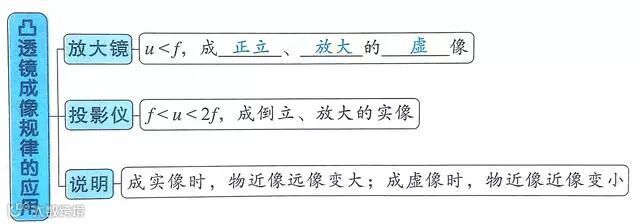 凸透镜成像规律的应用
放大镜 u<f，成 正立 、 放大 的 虚 像
投影仪 f<u<2f，成倒立、放大的实像
说明 成实像时，物近像远像变大；成虚像时，物近像近像变小
大数跨境